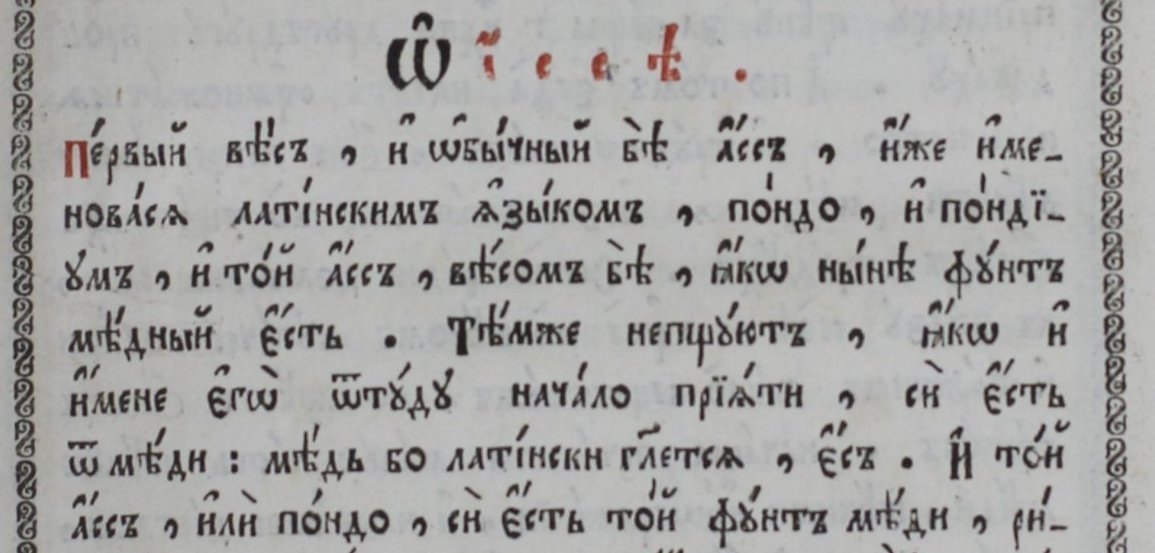 Ѽ і҆ссѣ .
Пе́рвый вѣ́съ , и҆ ѡ҆бы́чный бѣ̀ а҆́ссъ , и҆́же и҆ме-
нова́сѧ латі́нскимъ ѧ҆зы́комъ , по́ндо , и҆ по́ндї-
ꙋмъ , и҆ то́й а҆́ссъ , вѣ́сомъ бѣ̀ , ꙗ҆́кѡ ны́нѣ фꙋ́нтъ
мѣ́дный є҆́сть . Тѣ́мже непщꙋ́ютъ , ꙗ҆́кѡ и҆
и҆́мене є҆гѡ̀ ѿтꙋ́дꙋ нача́ло прїѧ́ти , сѝ є҆́сть
ѿ мѣ́ди : мѣ́дь бо латі́нски гл҃етсѧ , є҆́съ . И҆ то́й
а҆́ссъ , и҆лѝ по́ндо , сѝ є҆́сть то́й фꙋ́нтъ мѣ́ди , ри́-